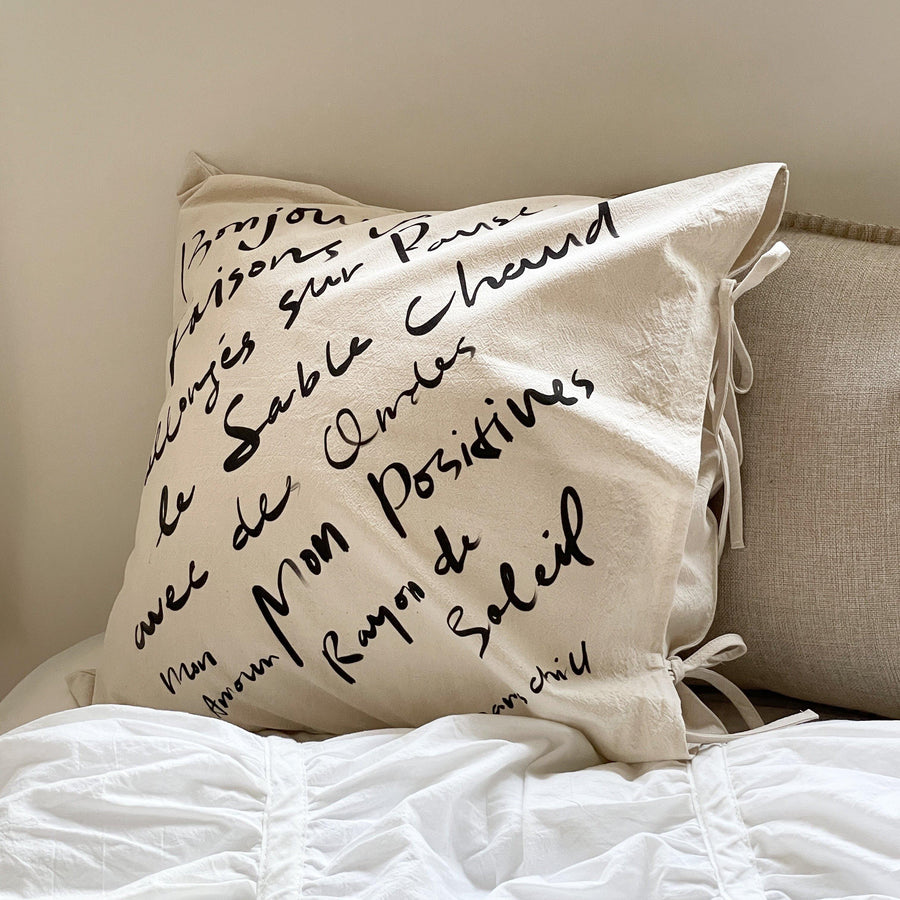 Bonjour
faisons une Pause
allongés sur
le Sable Chaud
avec des Ondes
Mon Positives
Mon Rayon de
Amour Soleil
chill